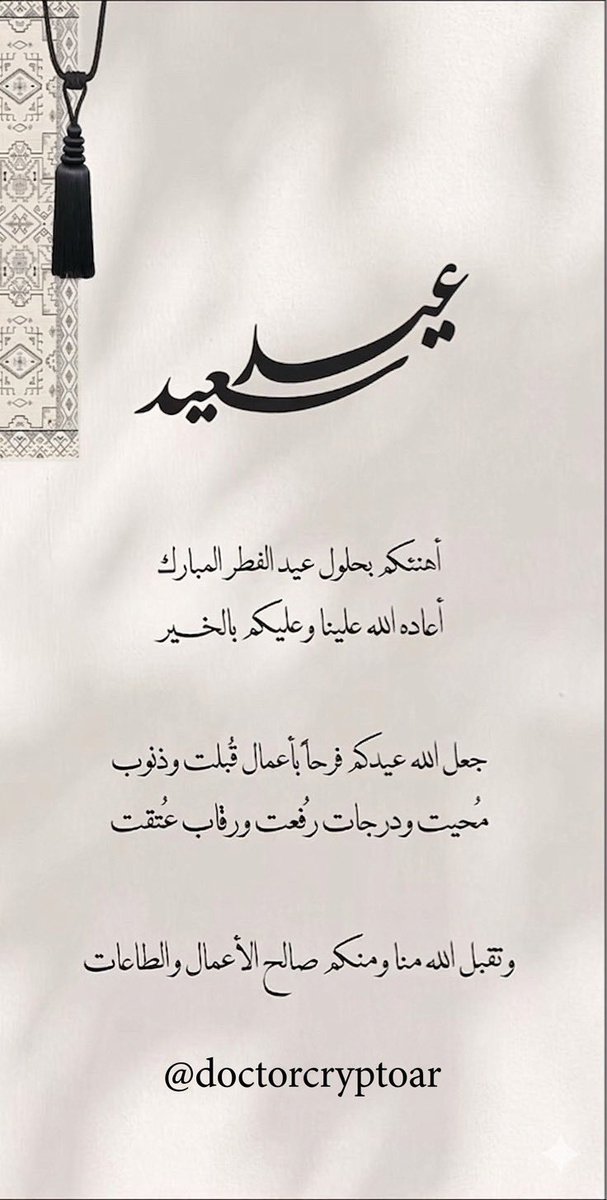 عيد سعيد
أهنئكم بحلول عيد الفطر المبارك
أعاده الله علينا وعليكم بالخير
جعل الله عيدكم فرحاً بأعمال قُبلت وذنوب
مُحيت ودرجات رُفعت ورقاب عُتقت
وتقبل الله منا ومنكم صالح الأعمال والطاعات
@doctorcryptoar